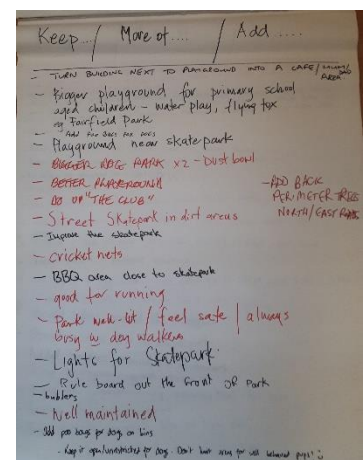 Keep.../ More of..../ Add ....
- TURN BUILDING NEXT TO PLAYGROUND INTO A CAFE/
AREA
- Bigger playground for primary school
aged children - water play, flying fox
eg Fairfield Park
- Playground near skatepark
- BIGGER DOG PARK x2 - Dust bowl
- BETTER PLAYGROUND
- DO UP "THE CLUB"
- ADD BACK
PERIMETER TREES
NORTH/EAST
- Street Skatepark in dirt areas
- Improve the skatepark
- cricket nets
- BBQ area close to skatepark
- good for running
- Park well-lit / feel safe / always
busy w dog walkers
- Lights for Skatepark.
- Rule board out the front of Park
- bubblers
- Well maintained
- Add poo bags for dogs on bins
- Keep it open/unrestricted for dogs. Don't